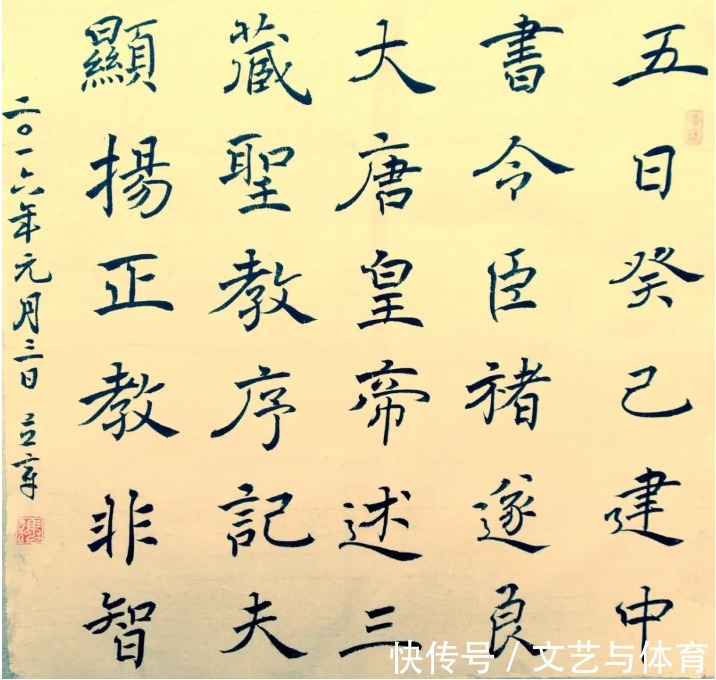 五日癸己建中
書令臣褚遂良
大唐皇帝述三
藏聖教序記夫
顯揚正教非智
二〇一六年元月三日
快传号 / 文艺与体育